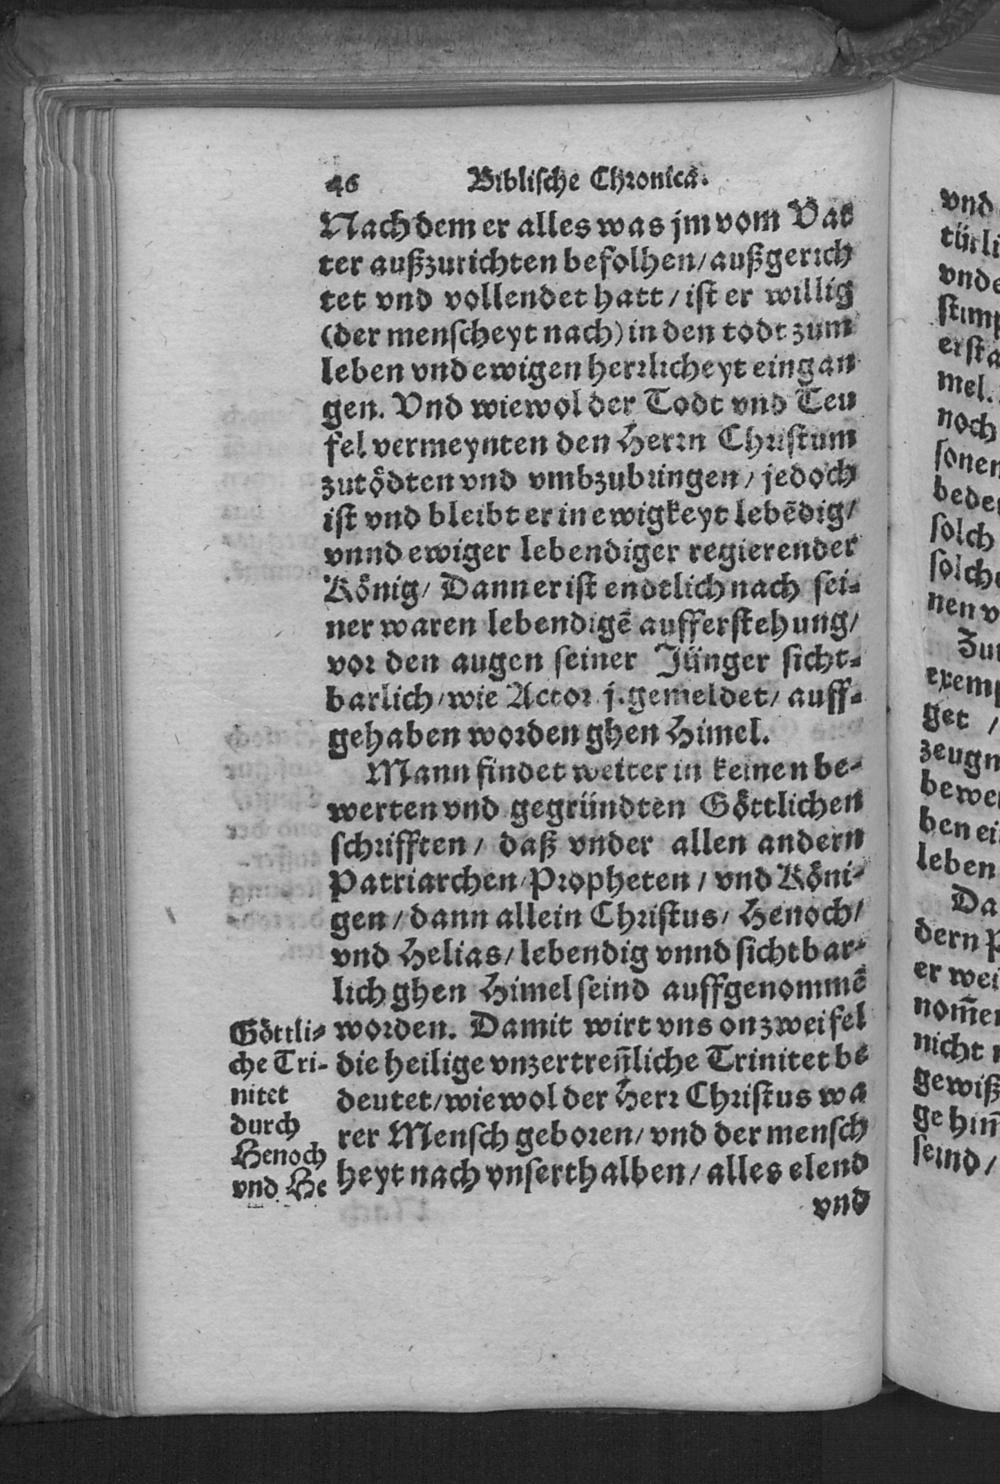 46 Biblische Chronica.
Nach dem er alles was jm vom Vat
ter außzurichten befolhen/ außgerich
tet vnd vollendet hatt/ ist er willig
(der menscheyt nach) in den todt zum
leben vnd ewigen herrlicheyt eingan
gen. Vnd wiewol der Todt vnd Teu
fel vermeynten den Herrn Christum
zutödten vnd vmbzubringen/ jedoch
ist vnd bleibt er in ewigkeyt lebēdig/
vnnd ewiger lebendiger regierender
König/ Dann er ist endtlich nach sei-
ner waren lebendigē aufferstehung/
vor den augen seiner Jünger sicht-
barlich/ wie Actor. j. gemeldet/ auff-
gehaben worden ghen Himel.
Mann findet weiter in keinen be-
werten vnd gegründten Göttlichen
schrifften/ daß vnder allen andern
Patriarchen/ Propheten/ vnd Köni-
gen/ dann allein Christus/ Henoch/
vnd Helias/ lebendig vnnd sichtbar-
lich ghen Himel seind auffgenommē
worden. Damit wirt vns on zweifel
die heilige vnzertreñliche Trinitet be
deutet/ wiewol der Herr Christus wa
rer Mensch geboren/ vnd der mensch
heyt nach vnserthalben/ alles elend
vnd
Göttli-
che Tri-
nitet
durch
Henoch
vnd He
vnd
türli
vnde
stimp
ersta
mel.
noch
sonen
bede
solch
solche
nen v
Zu
exemp
get /
zeugn
bewe
ben ei
leben
Da
dern p
er wei
nom̃en
nicht
gewiß
ge him̃
seind/